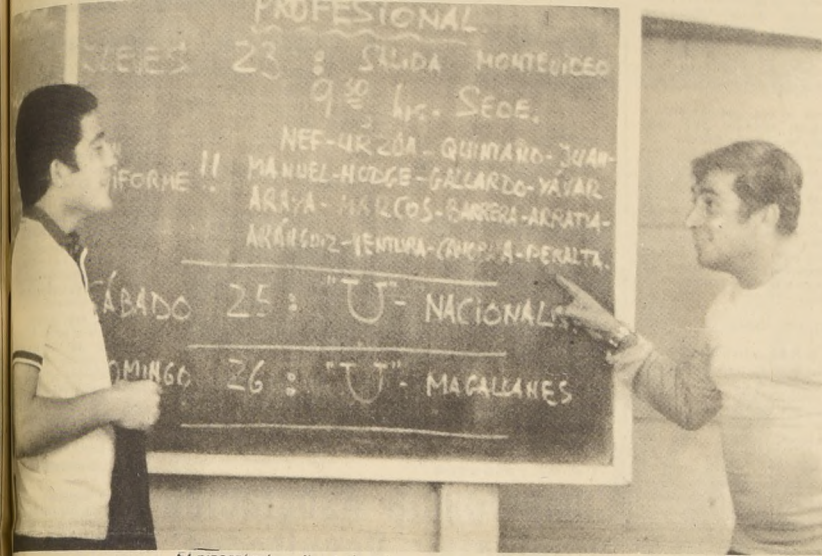 PROFESIONAL
23 : SALIDA MONTEVIDEO
9 30 hs. SEDE.
NEF-URZÚA-QUINTANO-JUAN-
IFORME !! MANUEL-HODGE-GALLARDO-YÁVAR
ARAYA-MARCOS-BARRERA-ARRATIA-
ARÁNGUIZ-VENTURA- -PERALTA.
SÁBADO 25 : "U"- NACIONAL
OMINGO 26 : "U"- MAGALLANES